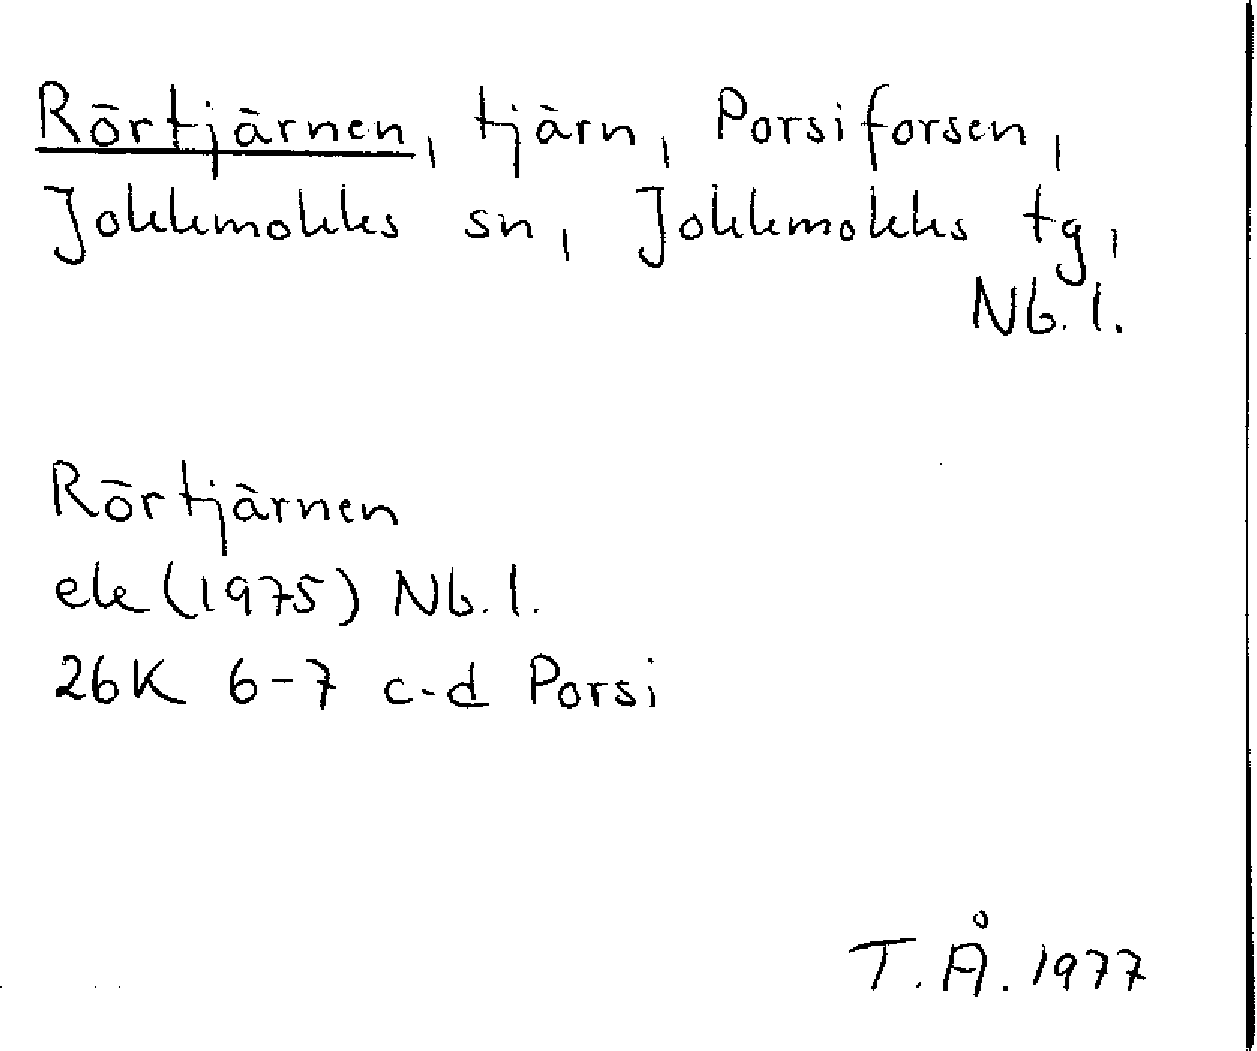 Rörtjärnen, tjärn, Porsiforsen,
Jokkmokks sn, Jokkmokks tg,
Nb. l.
Rörtjärnen
ek (1975) Nb. l.
26K 6-7 c-d Porsi
T. Å. 1977